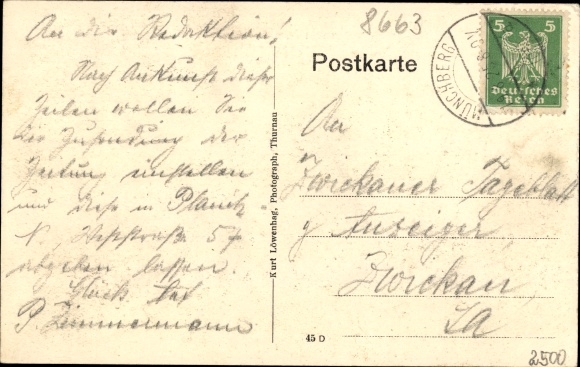 An die Redaktion!
Nach Ankunft dieser
Zeilen wollen Sie
die Zusendung der
Zeitung einstellen
und diese in Planitz-
N., Weststraße 54
abgeben lassen.
Glück auf
P. Zimmermann
8663
Postkarte
MÜNCHBERG
5 5
Deutsches
Reich
An
Zwickauer Tageblatt
Anzeiger,
Zwickau,
Sa
Kurt Löwenhag, Photograph, Thurnau
45 D
2500